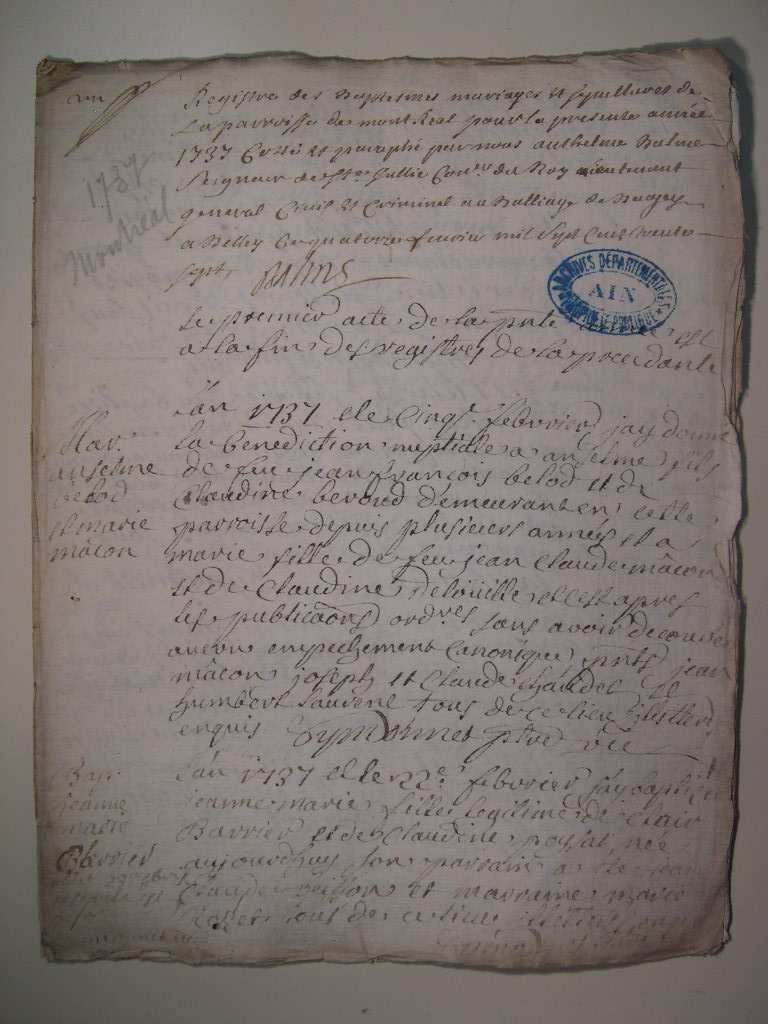 Registre des Baptesmes mariages et sepultures de
la parroisse de mont Real pour la presente année
1737 Cotté et paraphé par nous anthelme Balme
Seigneur de Ste Jullie Conser du Roy Lieutenant
general Civil et Criminel au Balliage de Bugey
a Belley Ce quatorze fevrier mil Sept Cent trente
sept Balme
1737
Montréal
ARCHIVES DÉPARTEMENTALES
AIN
le premier acte de la pnte est
a la fin des registres de la precedante
Mar.
anselme
belod
et marie
mâcon
L'an 1737 et le Cinq febvrier jay donné
la benediction nuptialle a anselme fils
de feu jean françois belod et de
Claudine beroud demeurant en cette
parroisse depuis plusieurs années et a
marie fille de feu jean Claude mâcon
et de Claudine delouille et c'est apres
les publicaons ordres sans avoir decouvert
aucun empechement Canonique pnts jean
mâcon joseph et Claude Chaudet et
humbert laurent tous de ce lieu illetterés
enquis ptre vic
Bap.
jeanne
marie
Barrier
L'an 1737 et le 22e febvrier jay baptisé
jeanne marie fille legitime de Clair
Barrier et de Claudine poysat née
aujourdhuy son parrain a ete jean
Claude et marraine marie
tous de ce lieu